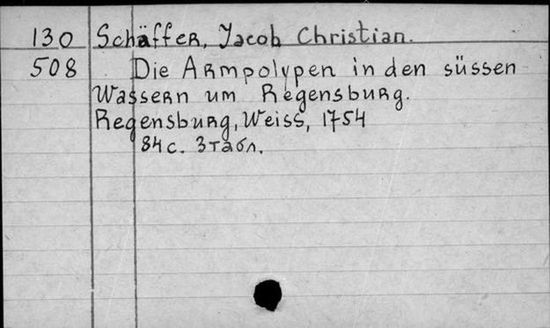 130 Schäffer, Jacob Christian.
508 Die Armpolypen in den süssen
Wassern um Regensburg.
Regensburg, Weiss, 1754
84 с. 3 табл.